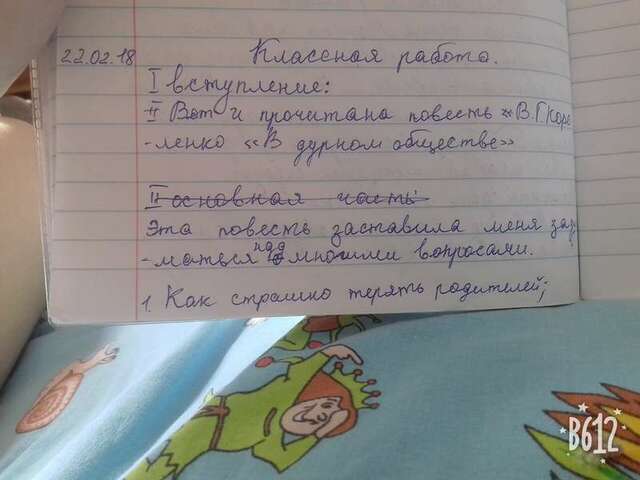 22.02.18 Классная работа.
I вступление:
II Вот и прочитана повесть «В.Г Коре
-ленко «В дурном обществе»
II основная часть
Эта повесть заставила меня заду
-маться над многими вопросами.
1. Как страшно терять родителей;
B612